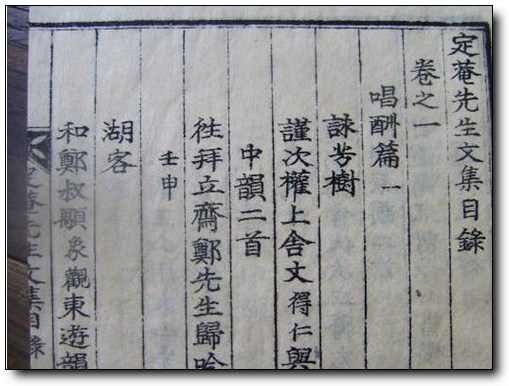 定菴先生文集目錄
卷之一
唱酬篇一
詠芳樹
謹次權上舍丈得仁與
中韻二首
徃拜立齋鄭先生歸吟
壬申
湖客
和鄭叔顒象觀東遊韻
定菴先生文集目錄